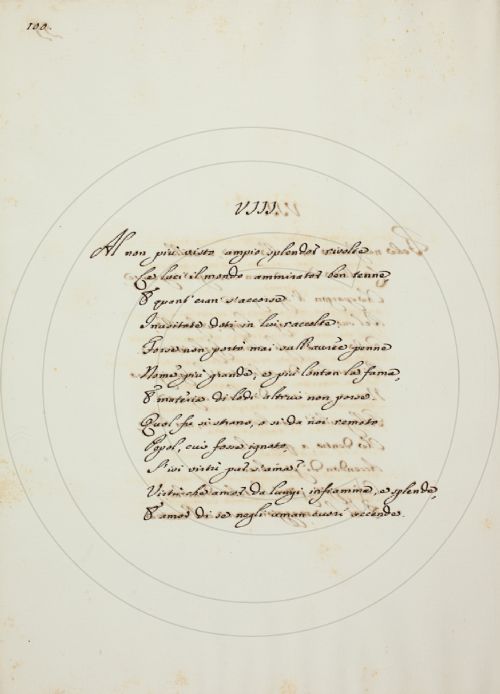 100.
VIII.
Al non più visto ampio splendor rivolte
Le luci il mondo ammirator ben tenne
E quant' eran s'accorse
Inusitate doti in lui raccolte;
Forse non portò mai sull' auree penne
Nome più grande, e più lontan la fama,
E materia di lodi altrui non porse.
Qual fu si strano, e si da noi remoto
Popol, cui fosse ignoto,
S' ivi virtù pur s'ama?
Virtù che amor da lungi infiamma, e splende,
E amor di se negli uman cuori accende.